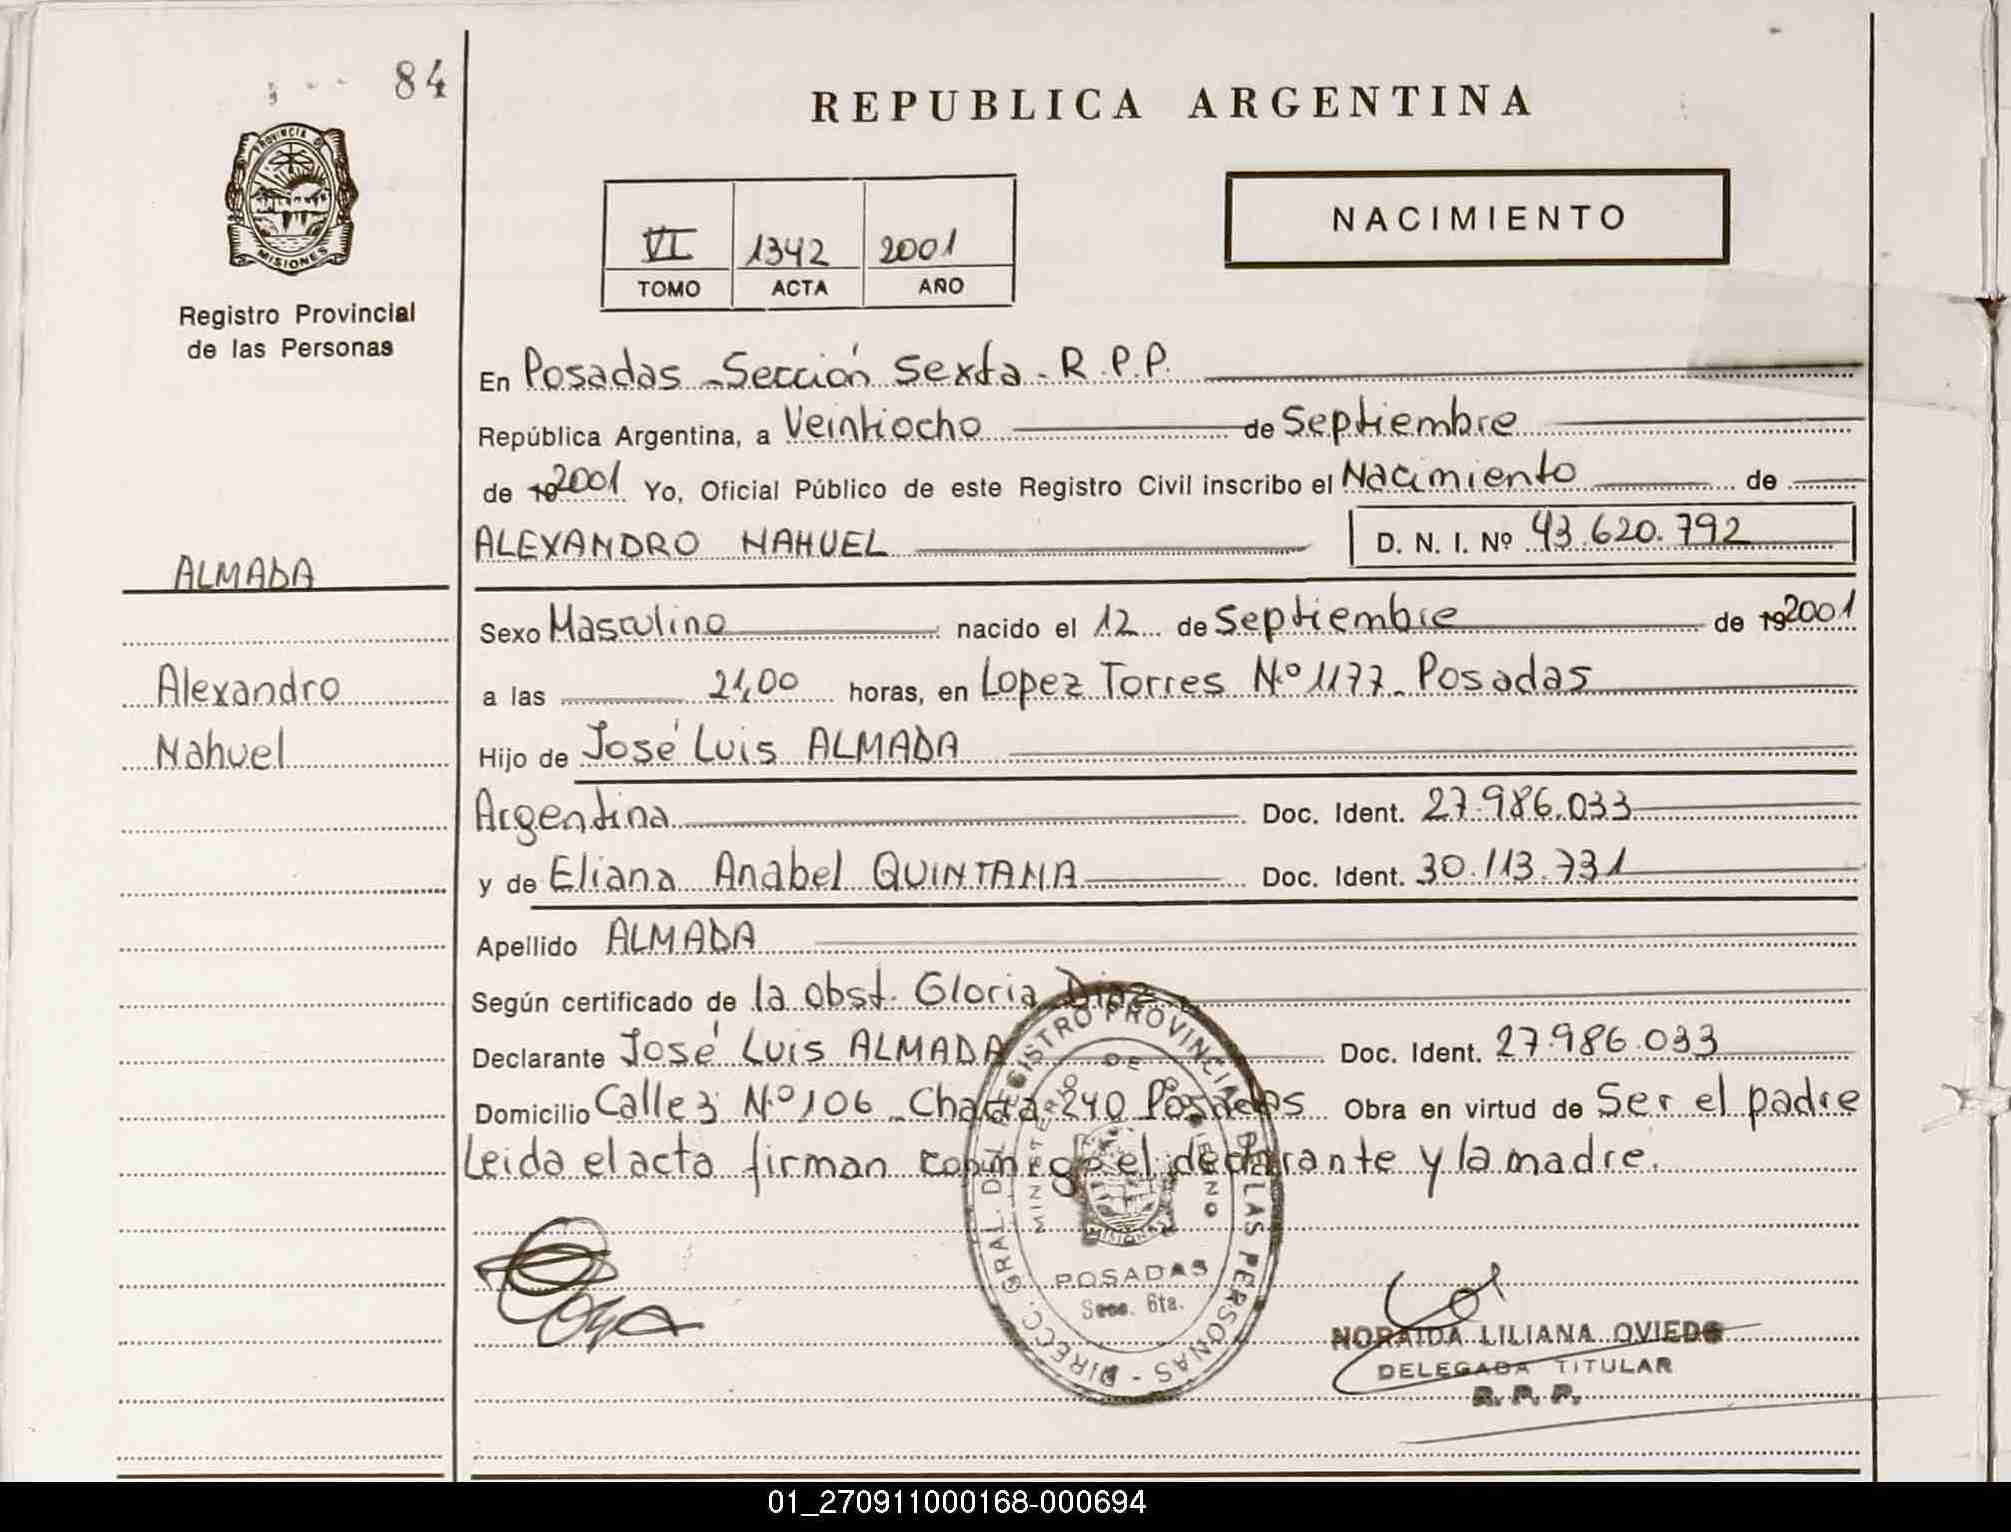 84
REPUBLICA ARGENTINA
PROVINCIA DE
MISIONES
Registro Provincial
de las Personas
VI 1342 2001
TOMO ACTA AÑO
NACIMIENTO
En Posadas - Sección Sexta - R.P.P.
República Argentina, a Veintiocho de Septiembre
de 19 2001 Yo, Oficial Público de este Registro Civil inscribo el Nacimiento de
ALEXANDRO NAHUEL D. N. I. Nº 43.620.792
ALMADA
Sexo Masculino nacido el 12 de Septiembre de 19 2001
Alexandro
a las 21,00 horas, en Lopez Torres Nº 1177 - Posadas
Nahuel
Hijo de José Luis ALMADA
Argentina Doc. Ident. 27.986.033
y de Eliana Anabel QUINTANA Doc. Ident. 30.113.731
Apellido ALMADA
Según certificado de la obst. Gloria Diaz
Declarante José Luis ALMADA Doc. Ident. 27.986.033
Domicilio Calle 3 Nº 106 - Chacra 240 Posadas Obra en virtud de Ser el padre
Leida el acta firman conmigo el declarante y la madre.
DIRECC. GRAL. DEL REGISTRO PROVINCIAL DE LAS PERSONAS -
MINISTERIO DE GOBIERNO
MISIONES
POSADAS
Secc. 6ta.
NORAIDA LILIANA OVIEDO
DELEGADA TITULAR
R. P. P.
01_270911000168-000694